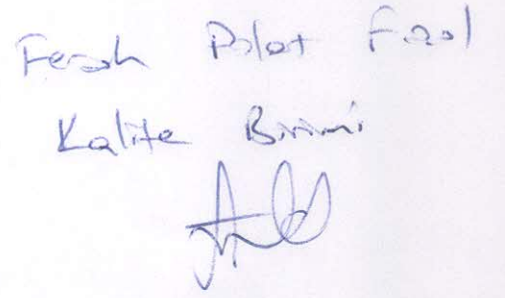 Ferah Polat Fazol
Kalite Birimi